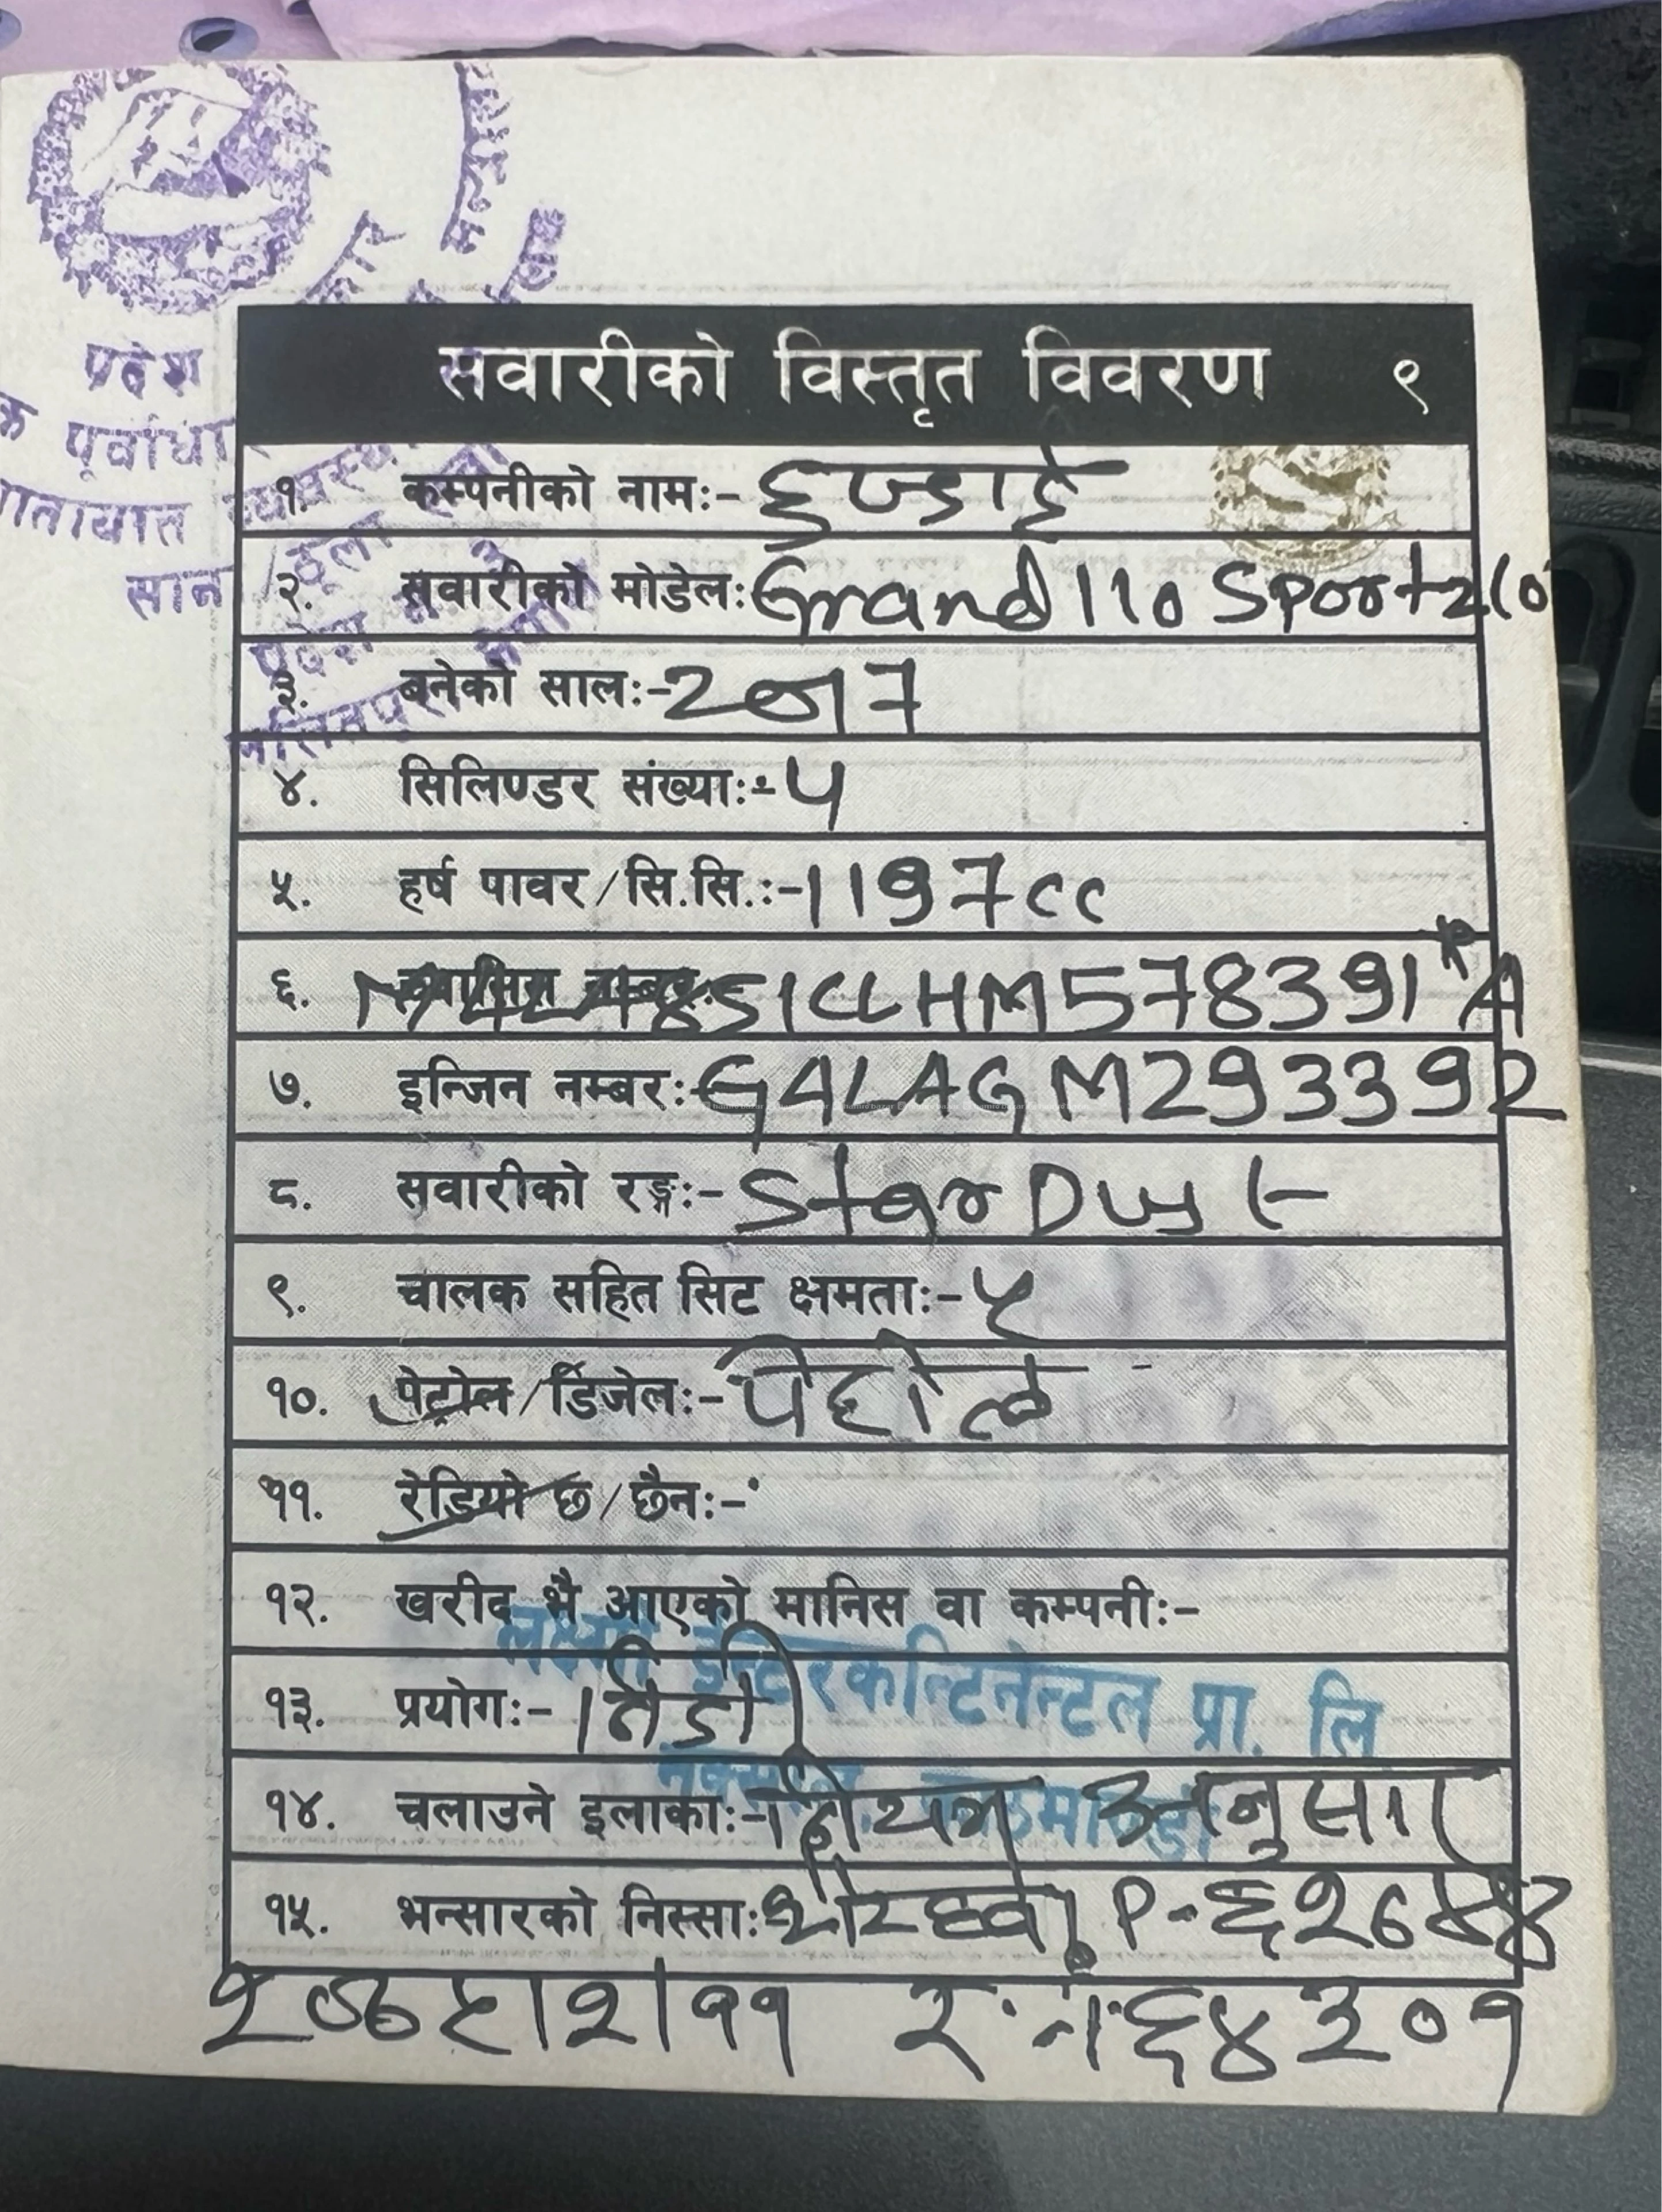 प्रदेश
पूर्वाधा
यातायात व्यवस्था
साना/ठूला
सवारीको विस्तृत विवरण ९
१. कम्पनीको नामः- हुण्डाई
२. सवारीको मोडेलः- Grand I10 Sportz(O
३. बनेको सालः- 2017
४. सिलिण्डर संख्याः- 4
५. हर्ष पावर/सि.सि.ः- 1197cc
६. च्यासिस नम्बरः- MALA851CLHM578391*A
७. इन्जिन नम्बरः- G4LAGM293392
८. सवारीको रङ्गः- Star Dust
९. चालक सहित सिट क्षमताः- ५
१०. पेट्रोल/डिजेलः- पेट्रोल
११. रेडियो छ/छैनः-
१२. खरीद भै आएको मानिस वा कम्पनीः-
लक्ष्मी इन्टरकन्टिनेन्टल प्रा. लि
१३. प्रयोगः- निजी
नक्साल, काठमाण्डौ
१४. चलाउने इलाकाः- नियम अनुसार
१५. भन्सारको निस्साः- P-
र.नं. ६४३०१